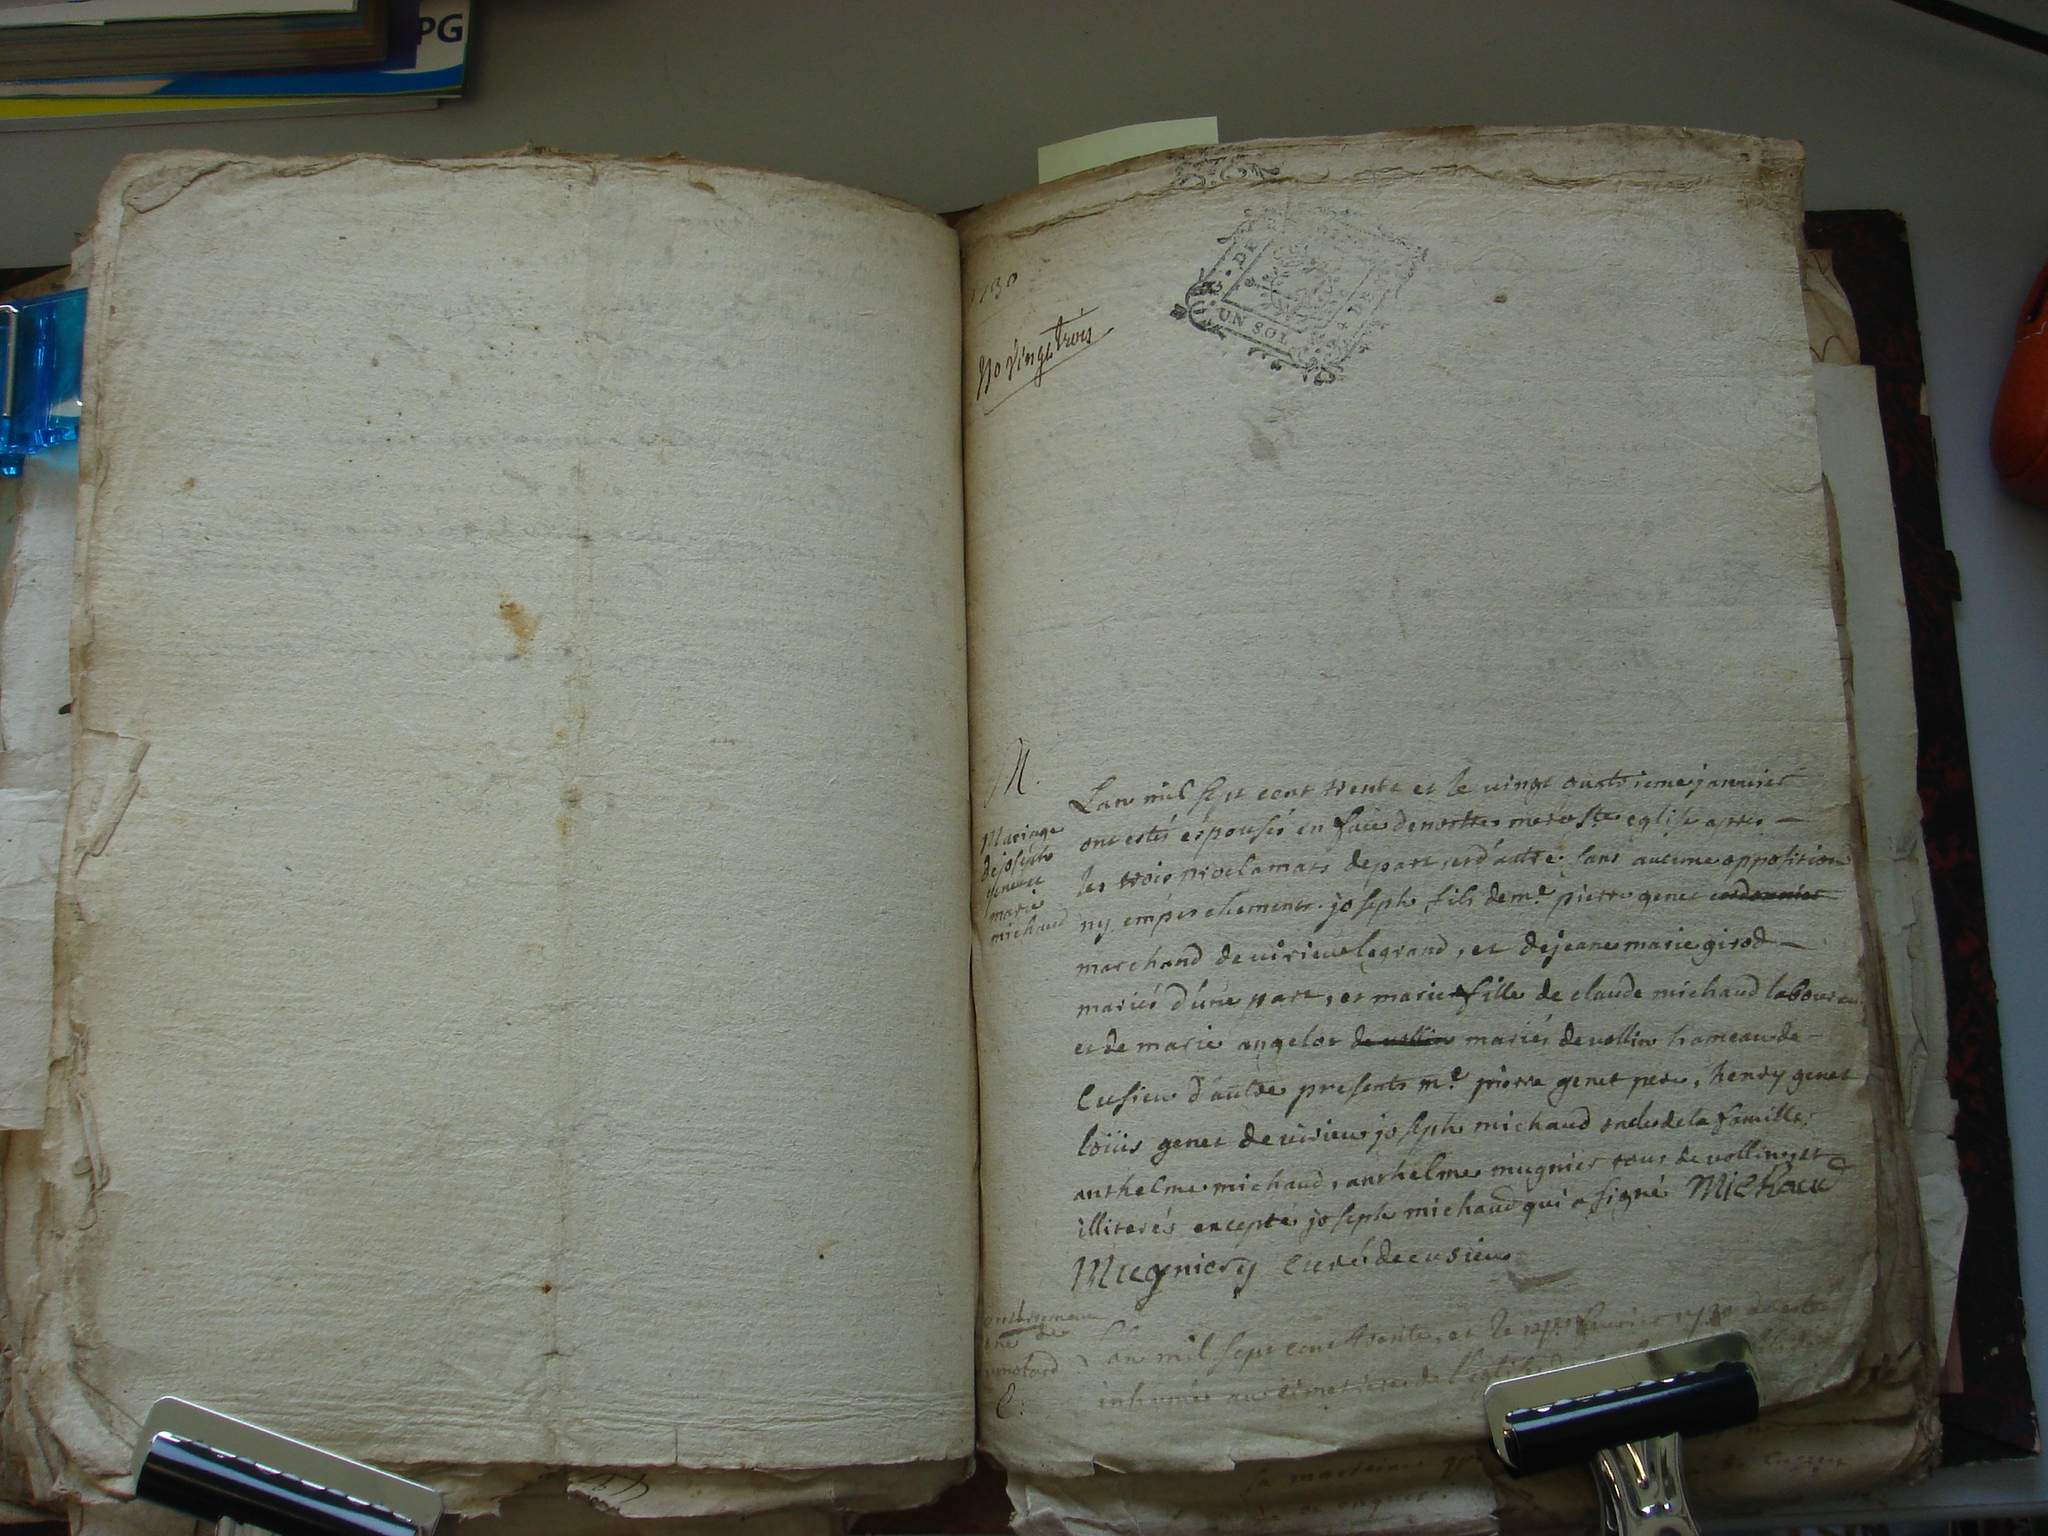 PG
1730
No vingt trois
UN SOL
M.
Mariage
de joseph
genet et
marie
michaud
Lan mil sept cent trente et le vingt quatrieme janvier
ont estés espousés en face de nostre mere ste eglise apres
les trois proclamats de part et d'autre sans aucune opposition
ny empeschement. joseph fils de me. pierre genet cordonnier
marchand de virieu le grand, et de jeane marie girod
mariés d'une part, et marie fille de claude michaud laboureur
et de marie angelot de vollin mariés de vollin hameau de
Cusieu d'autre presents me. pierre genet pere, henry genet
loüis genet de virieu joseph michaud oncle de la famille.
anthelme michaud, anthelme mugnier tous de vollin, et
illiterés excepté joseph michaud qui a signé Michaud
Mugniery Curé de cusieu
enterrement
de
C.
Lan mil sept cent trente, et le fevrier 1730 a esté
inhumé au cimetiere de l'eglise